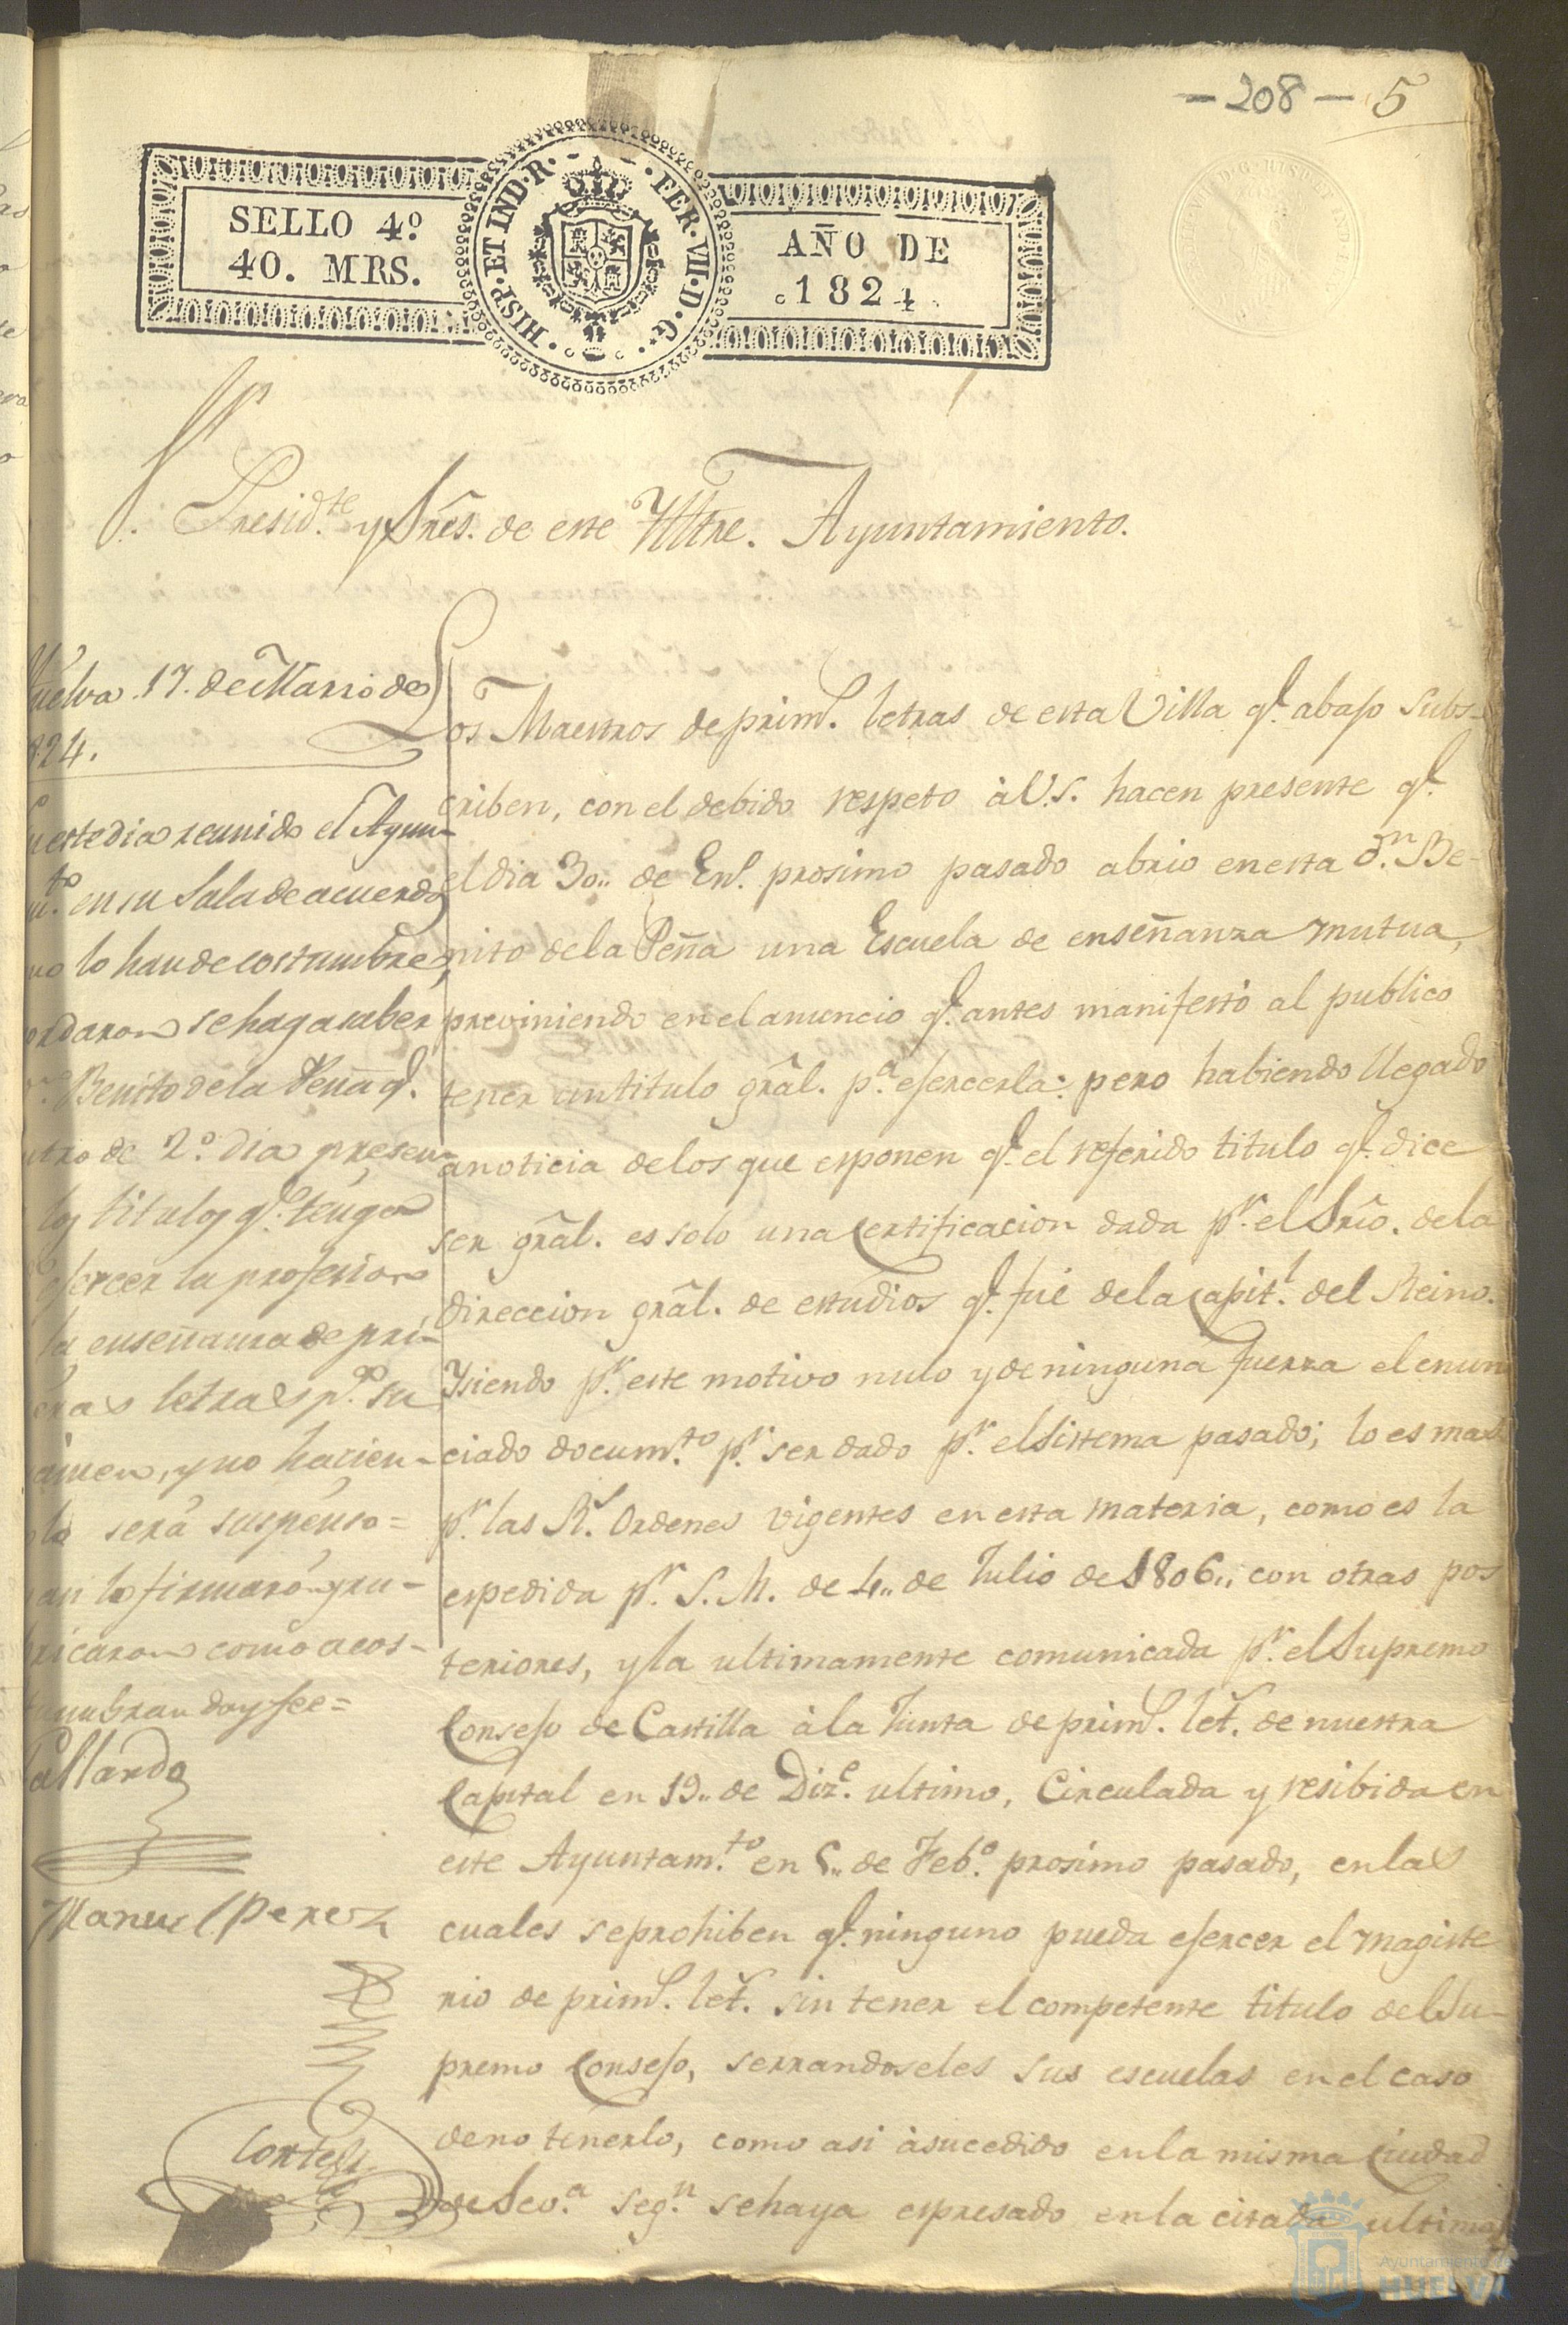 - 208 - 5
SELLO 4º
40. MRS.
HISP. ET IND. R. FER. VII. D. G.
AÑO DE
1824
Sr.
Presidte. y Sres. de este Ylltre. Ayuntamiento.
Huelva .17. de Marzo de
824.
este dia reunido el Ayun-
to. en su Sala de acuerdo
lo han de costumbre,
ordaron se haga saber
Benito de la Peña q.e
de 2.º dia presen-
los titulos q.e tenga
ejercer la profesion
la enseñanza de pri-
letras p.a su
y no hacien-
será suspenso=
lo firmaron y ru-
bricaron como acos-
tumbran doy fee=
Gallardo
Manuel Perez
Cortes
Los Maestros de prim.s letras de esta Villa q.e abajo subs-
criben, con el debido respeto à V.S. hacen presente q.e
el dia 30,, de En.o prosimo pasado abrio en esta D.n Be-
nito de la Peña una Escuela de enseñanza mutua,
previniendo en el anuncio q.e antes manifestó al publico
tener un titulo gral. p.a ejercerla: pero habiendo llegado
a noticia de los que esponen q.e el referido titulo q.e dice
ser gral. es solo una Certificacion dada p.r el Srio. de la
direccion gral. de estudios q.e fué de la Capit.l del Reino.
Y siendo p.r este motivo nulo y de ninguna fuerza el enun
ciado docum.to p.r ser dado p.r el Sistema pasado; lo es mas
p.r las R.s Ordenes vigentes en esta materia, como es la
espedida p.r S.M. de 4,, de Julio de 1806,, con otras pos
teriores, y la ultimamente comunicada p.r el Supremo
Consejo de Castilla à la Junta de prim.s let.s de nuestra
Capital en 19,, de Diz.e ultimo, Circulada y resibida en
este Ayuntam.to en 5,, de Feb.o prosimo pasado, en las
cuales se prohiben q.e ninguno pueda ejercer el magiste
rio de prim.s let.s sin tener el competente titulo del Su-
premo Consejo, serrandoseles sus escuelas en el caso
de no tenerlo, como asi à sucedido en la misma Ciudad
de Sev.a seg.n se haya espresado en la citada ultima
Ayuntamiento de
HUELVA